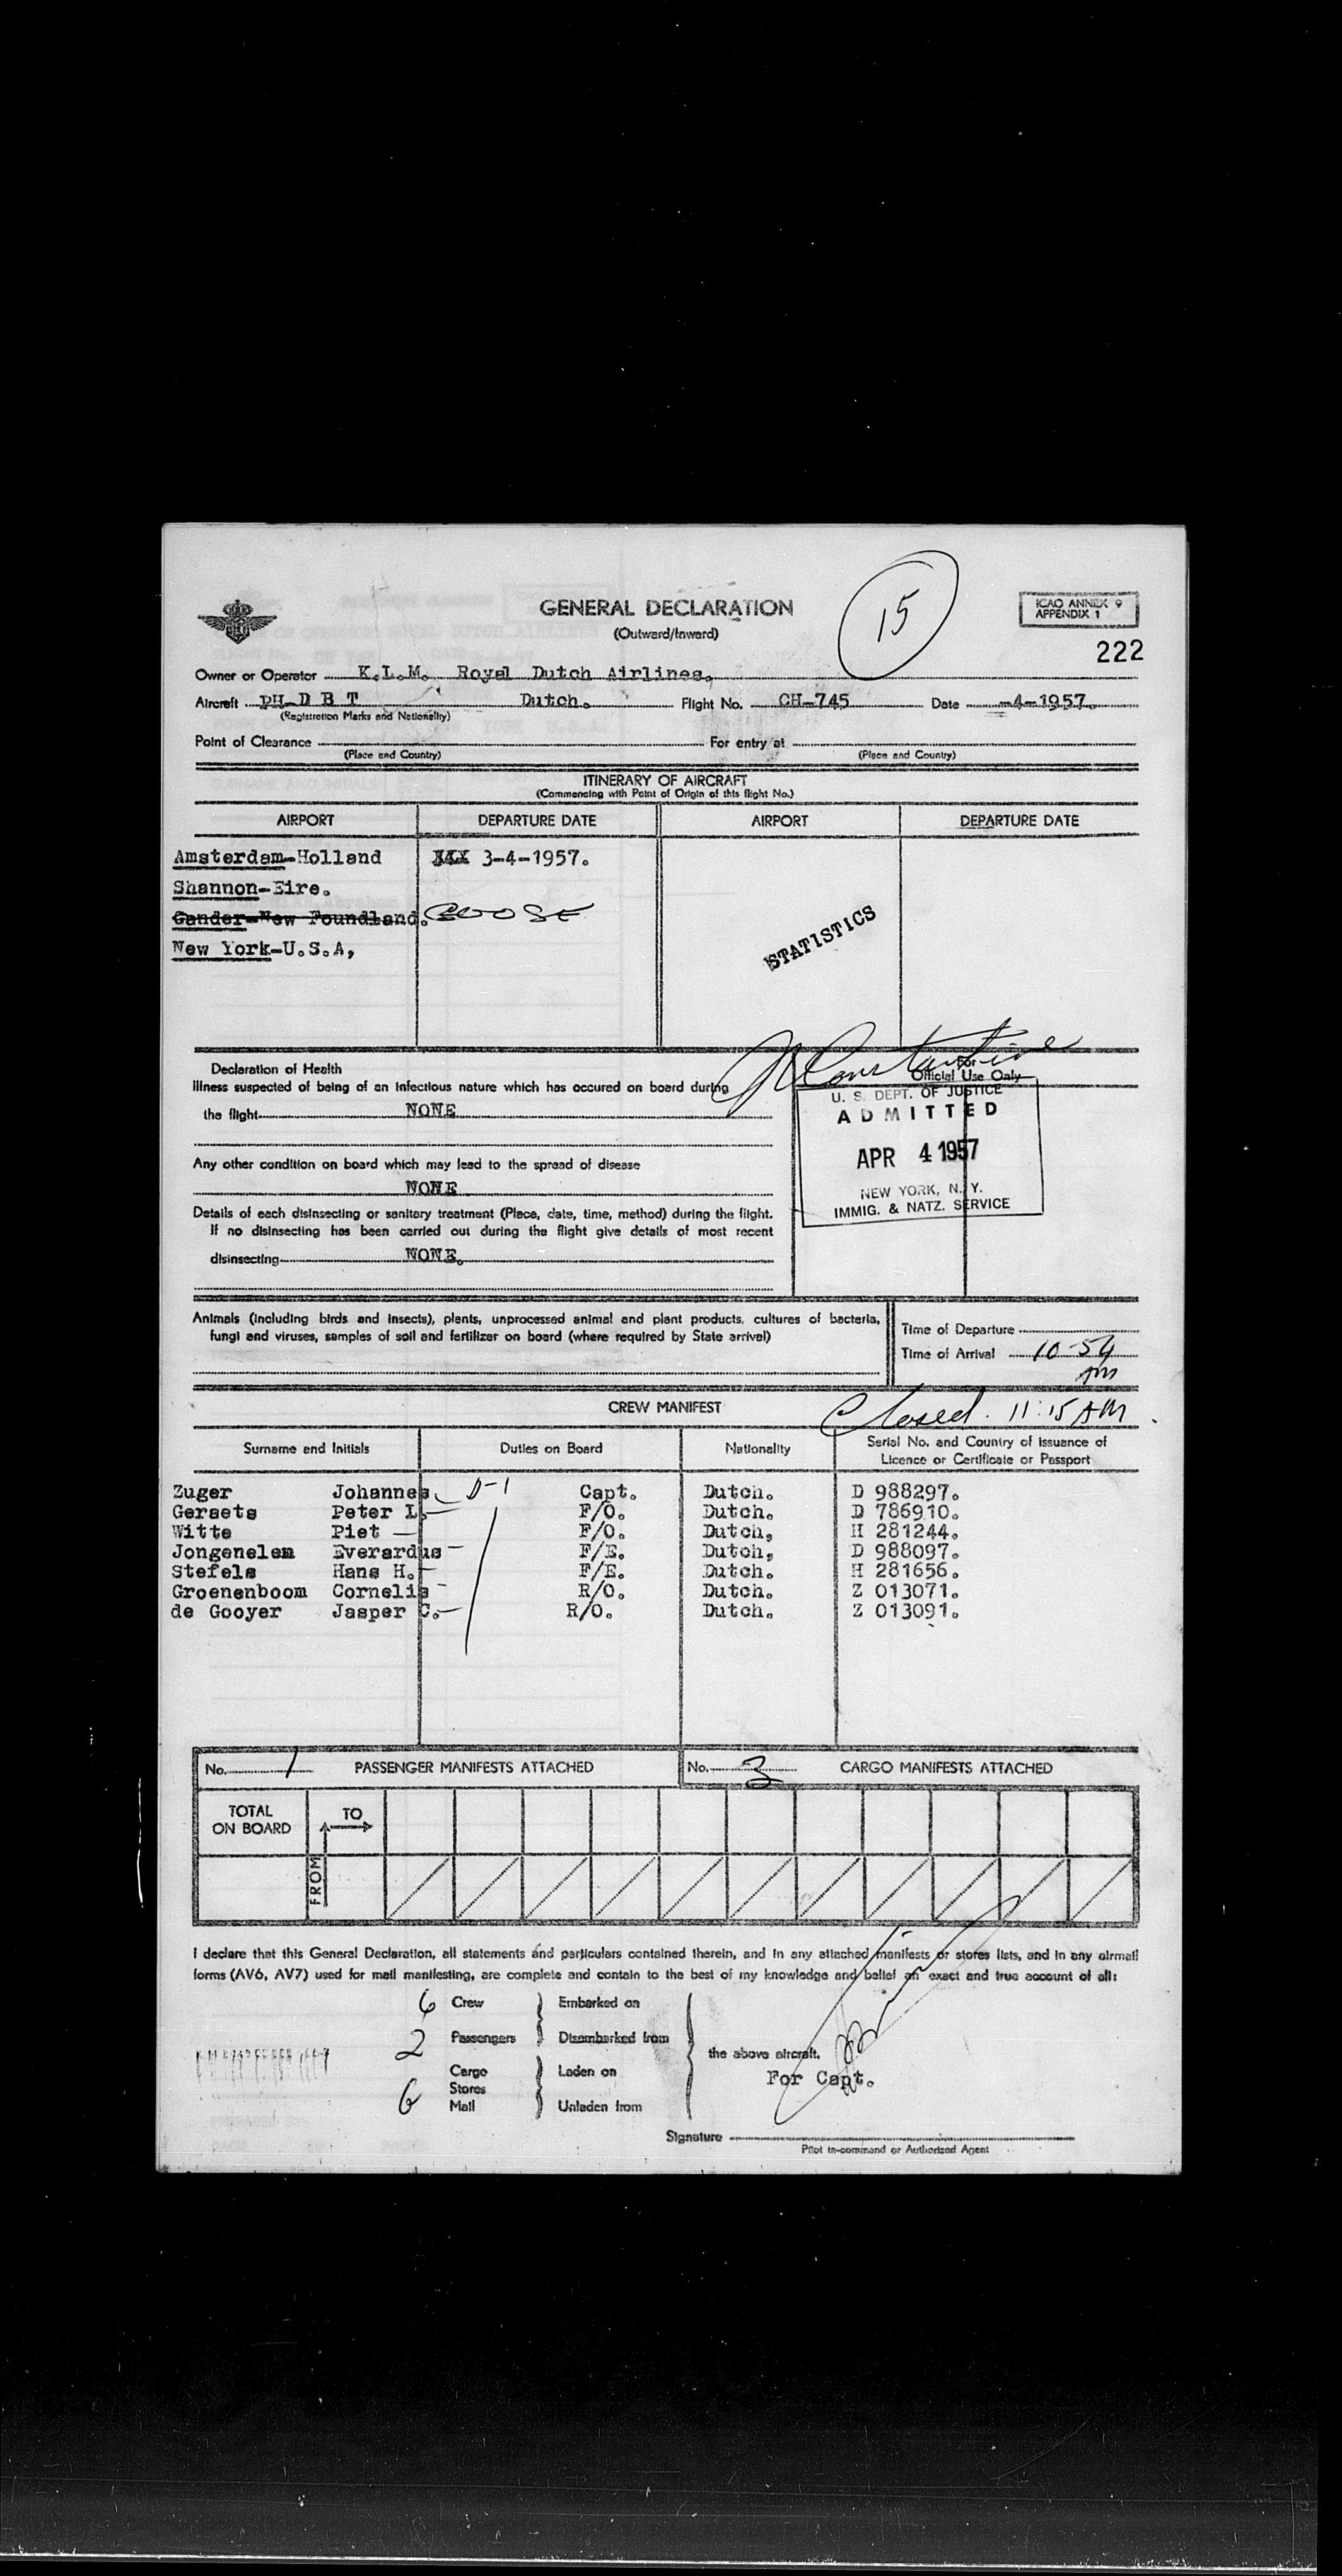 GENERAL DECLARATION
(Outward/Inward)
15
ICAO ANNEX 9
APPENDIX 1
222
Owner or Operator K.L.M. Royal Dutch Airlines.
Aircraft PH-D B T Dutch. Flight No. CH-745 Date -4-1957.
(Registration Marks and Nationality)
Point of Clearance For entry at
(Place and Country) (Place and Country)
ITINERARY OF AIRCRAFT
(Commencing with Point of Origin of this flight No.)
AIRPORT DEPARTURE DATE AIRPORT DEPARTURE DATE
Amsterdam-Holland XXX 3-4-1957.
Shannon-Eire.
Gander-New Foundland. GOOSE
New York-U.S.A,
STATISTICS
Declaration of Health
For
Official Use Only
Illness suspected of being of an infectious nature which has occured on board during
the flight NONE
U. S. DEPT. OF JUSTICE
ADMITTED
APR 4 1957
NEW YORK, N. Y.
IMMIG. & NATZ. SERVICE
Any other condition on board which may lead to the spread of disease
NONE
Details of each disinsecting or sanitary treatment (Place, date, time, method) during the flight.
If no disinsecting has been carried out during the flight give details of most recent
disinsecting NONE.
Animals (including birds and insects), plants, unprocessed animal and plant products, cultures of bacteria,
fungi and viruses, samples of soil and fertilizer on board (where required by State arrival)
Time of Departure
Time of Arrival 10-54
am
CREW MANIFEST
Closed. 11:15 AM
Surname and Initials Duties on Board Nationality Serial No. and Country of Issuance of
Licence or Certificate or Passport
Zuger Johannes. D-1 Capt. Dutch. D 988297.
Geraets Peter L. F/O. Dutch. D 786910.
Witte Piet F/O. Dutch, H 281244.
Jongenelen Everardus F/E. Dutch, D 988097.
Stefels Hans H. F/E. Dutch. H 281656.
Groenenboom Cornelis R/O. Dutch. Z 013071.
de Gooyer Jasper C. R/O. Dutch. Z 013091.
No. 1 PASSENGER MANIFESTS ATTACHED No. 3 CARGO MANIFESTS ATTACHED
TOTAL
ON BOARD
TO
FROM
I declare that this General Declaration, all statements and particulars contained therein, and in any attached manifests or stores lists, and in any airmail
forms (AV6, AV7) used for mail manifesting, are complete and contain to the best of my knowledge and belief an exact and true account of all:
6 Crew Embarked on
2 Passengers Disembarked from
the above aircraft.
Cargo Laden on
For Capt.
Stores
6 Mail Unladen from
Signature
Pilot in-command or Authorized Agent